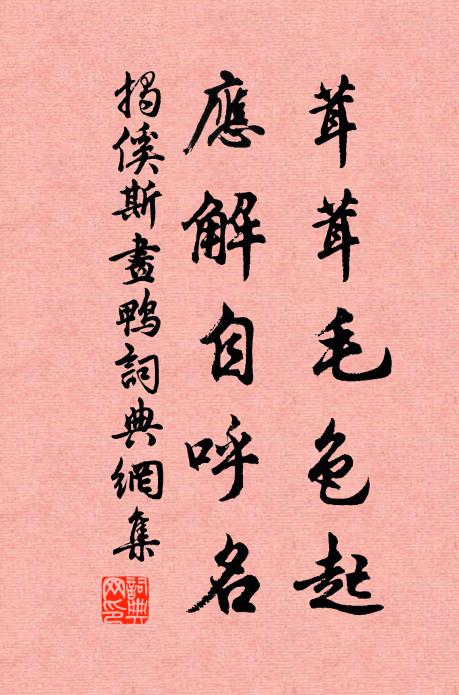 茸茸毛色起
應解自呼名
揭傒斯畫鴨詞典網集
詞典
网印